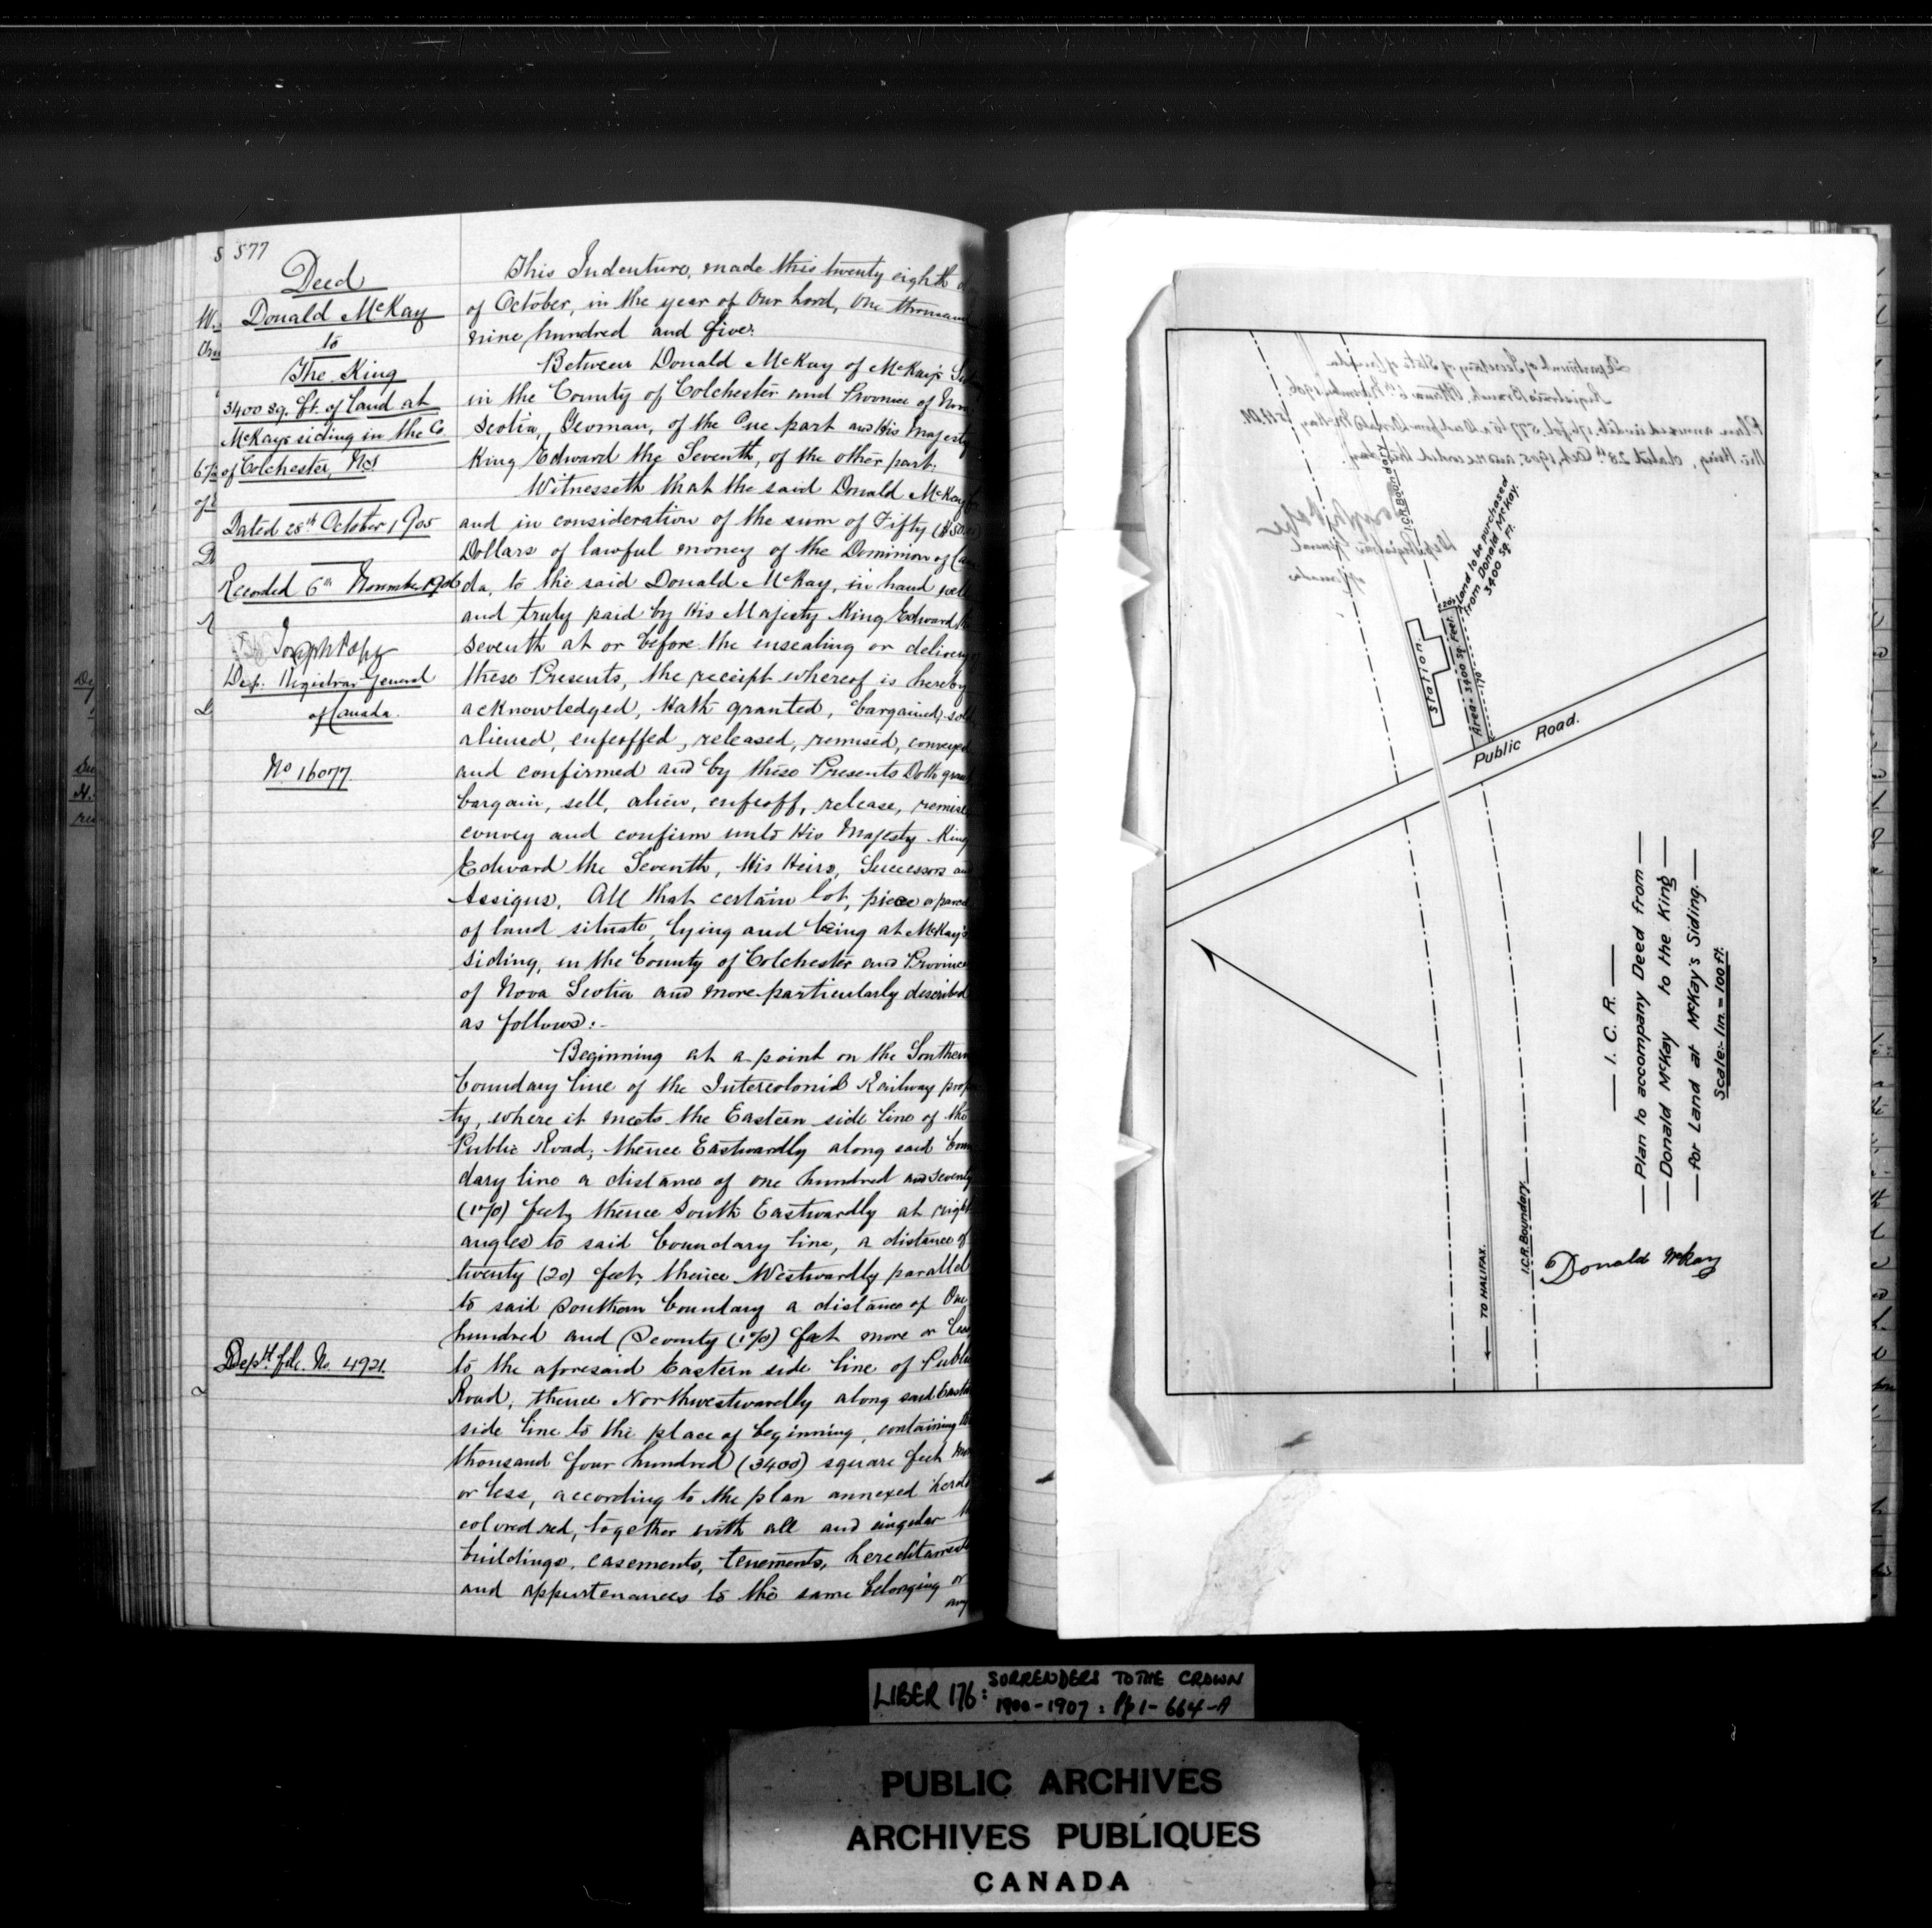 577
Deed
Donald McKay
to
The King
3400 sq. ft. of land at
McKays siding in the Co
of Colchester, NS
Dated 28th October 1905
Recorded 6th November 1906
Joseph Pope
Dep: Registrar General
of Canada.
No 16077.
Dept. file No. 4921.
This Indenture, made this twenty eighth
of October, in the year of Our Lord, One thousand
nine hundred and five:
Between Donald McKay of McKay's
in the County of Colchester and Province of Nova
Scotia, Yeoman, of the One part and His Majesty
King Edward the Seventh, of the other part.
Witnesseth that the said Donald McKay
and in consideration of the sum of Fifty
Dollars of lawful money of the Dominion of Cana
da, to the said Donald McKay, in hand well
and truly paid by His Majesty King Edward the
Seventh at or before the ensealing or delivery
these Presents, the receipt whereof is hereby
acknowledged, Hath granted, bargained, sold
aliened, enfeoffed, released, remised, conveyed
and confirmed and by these Presents Doth grant
bargain, sell, alien, enfeoff, release, remise
convey and confirm unto His Majesty King
Edward the Seventh, His Heirs, Successors and
Assigns, All that certain lot, piece or parcel
of land situate, lying and being at McKay's
Siding, in the County of Colchester and Province
of Nova Scotia and more particularly described
as follows:-
Beginning at a point on the Southern
boundary line of the Intercolonial Railway prop
ty, where it meets the Eastern side line of the
Public Road; thence Eastwardly along said boun
dary line a distance of one hundred and seventy
(170) feet, thence South Eastwardly at right
angles to said boundary line, a distance of
twenty (20) feet, thence Westwardly parallel
to said Southern boundary a distance of One
hundred and Seventy (170) feet more or less
to the aforesaid Eastern side line of Public
Road, thence Northwestwardly along said Eastern
side line to the place of beginning, containing
thousand four hundred (3400) square feet more
or less, according to the plan annexed hereto
colored red, together with all and singular
buildings, easements, tenements, hereditaments
and appurtenances to the same belonging or
any
Department of Secretary of State of Canada
Registrar's Branch, Ottawa 6th November 1906
Plan annexed in Lib. 176 fol. 577 to a Deed from Donald McKay to
The King, dated 28th Oct, 1905, and recorded this day.
Joseph Pope
Dep Registrar General
of Canada
I.C.R. Boundary
Land to be purchased
from Donald McKay.
3400 Sq. Ft.
Station.
20'
Area = 3400 Sq. Feet
170'
Public Road.
— I. C. R. —
— Plan to accompany Deed from —
— Donald McKay to the King —
— for Land at McKay's Siding. —
Scale:- 1in. = 100 ft.
TO HALIFAX.
I.C.R. Boundary
Donald McKay
LIBER 176: SURRENDERS TO THE CROWN
1900-1907: Pp 1-664-A
PUBLIC ARCHIVES
ARCHIVES PUBLIQUES
CANADA